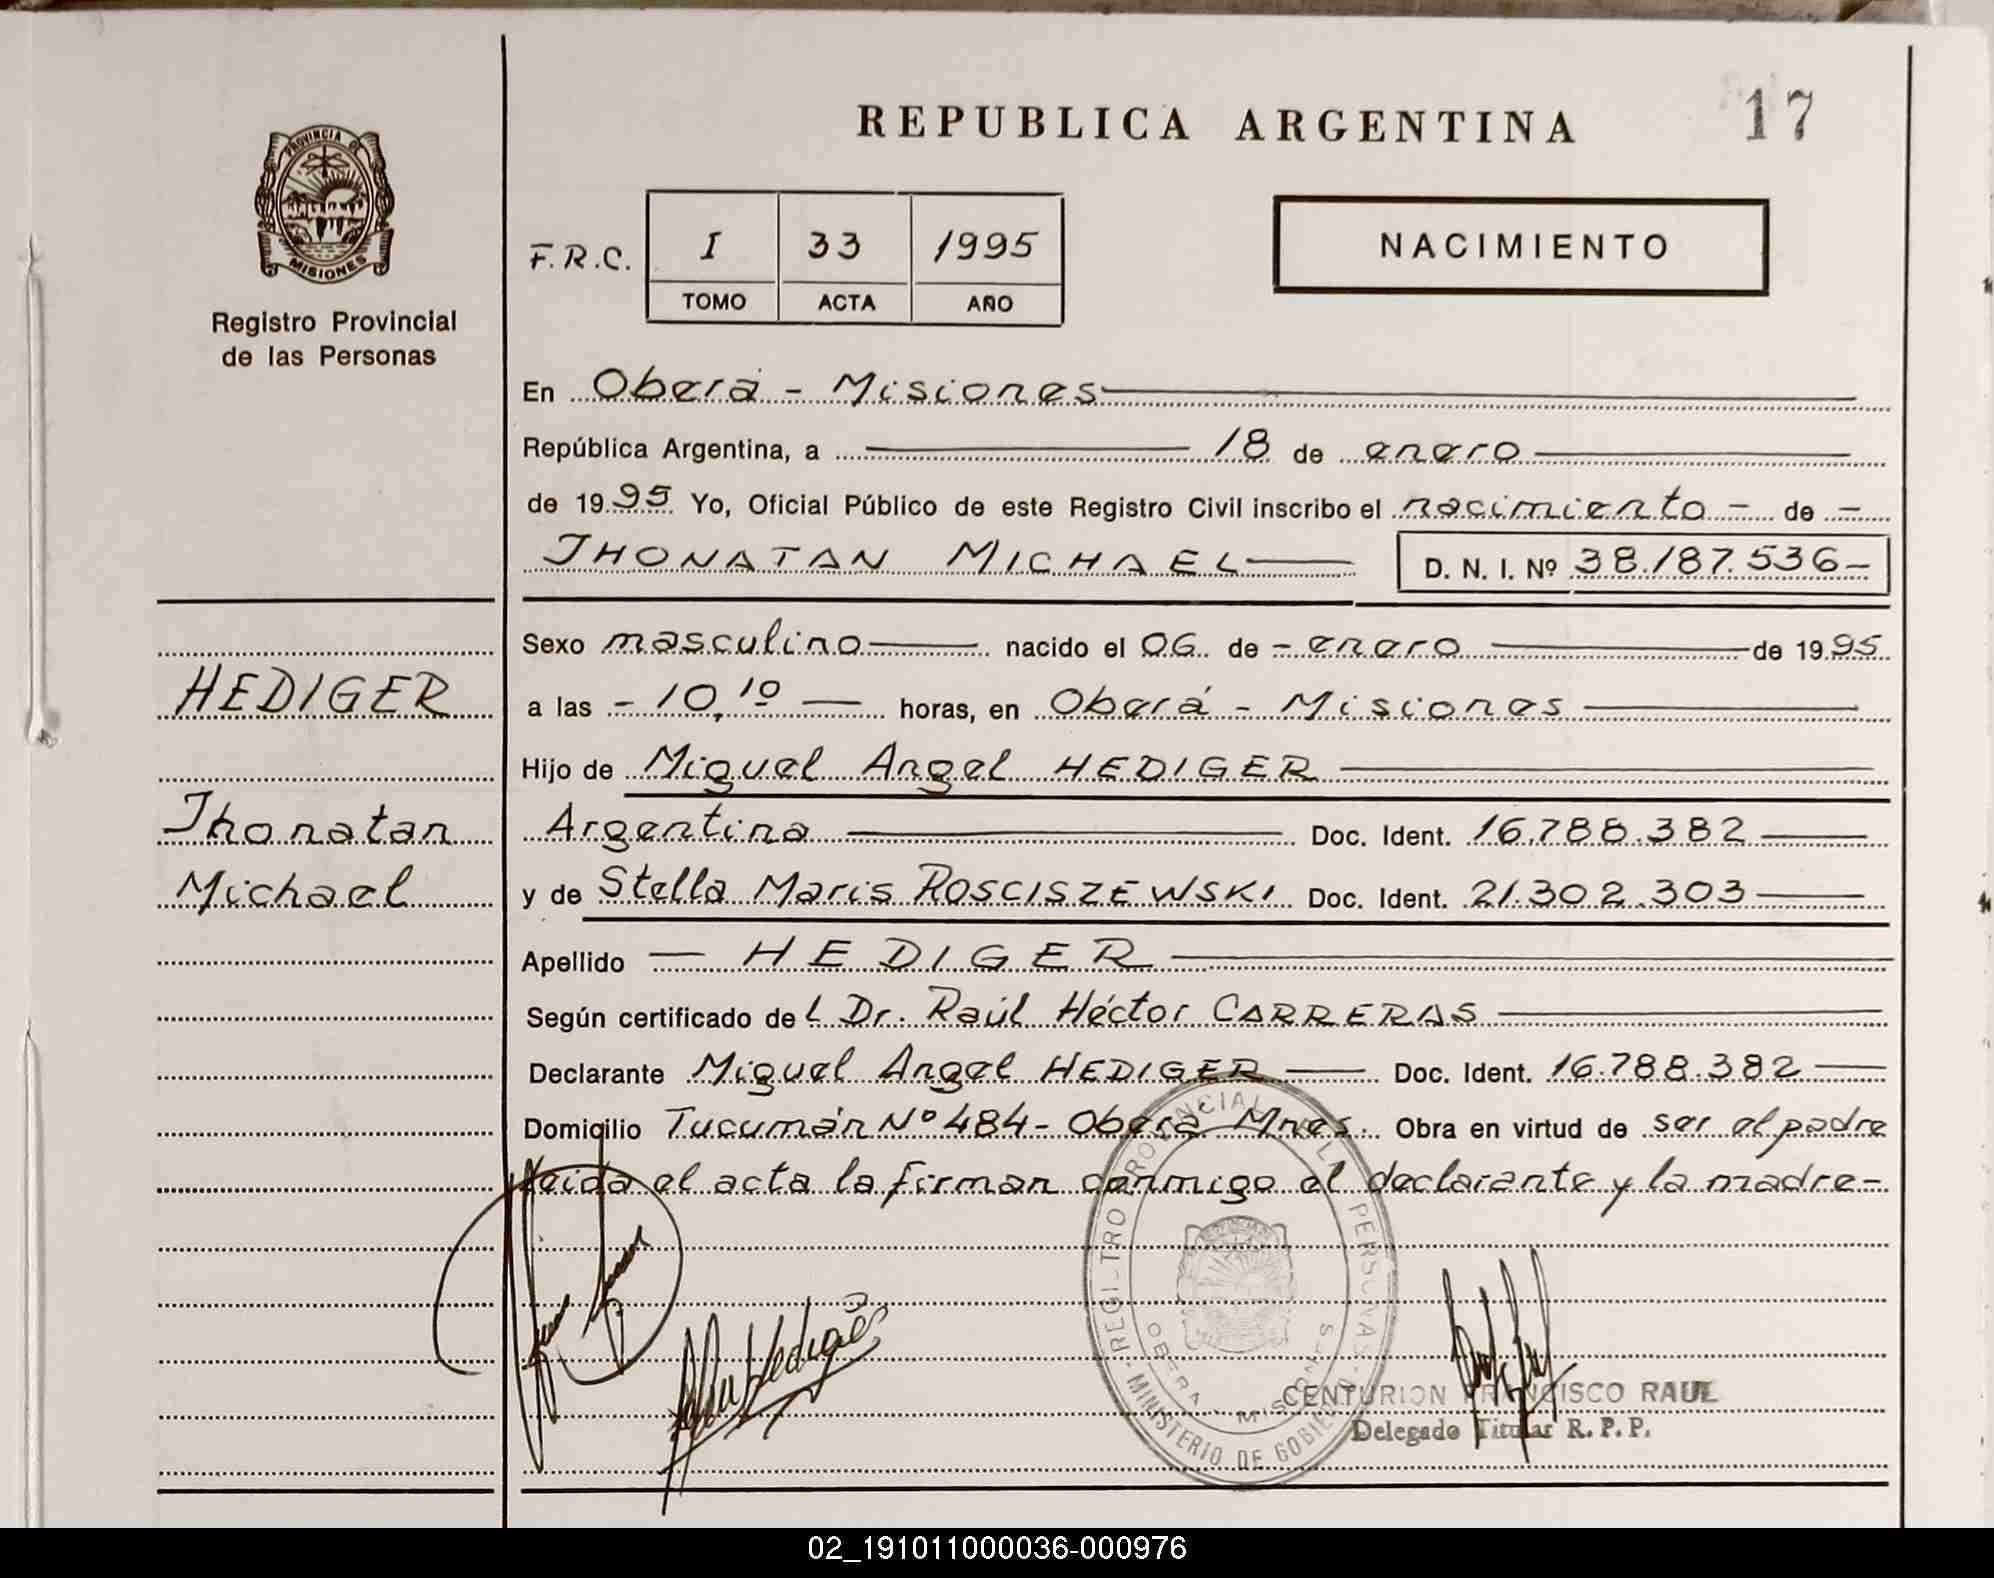 REPUBLICA ARGENTINA
17
PROVINCIA DE
MISIONES
Registro Provincial
de las Personas
F.R.C.
I 33 1995
TOMO ACTA AÑO
NACIMIENTO
En Oberá - Misiones
República Argentina, a 18 de enero
de 1995 Yo, Oficial Público de este Registro Civil inscribo el nacimiento - de -
JHONATAN MICHAEL D. N. I. Nº 38.187.536-
HEDIGER
Jhonatan
Michael
Sexo masculino nacido el 06 de - enero de 1995
a las - 10,10 horas, en Oberá - Misiones
Hijo de Miguel Angel HEDIGER
Argentina Doc. Ident. 16.788.382
y de Stella Maris ROSCISZEWSKI Doc. Ident. 21.302.303
Apellido HEDIGER
Según certificado del Dr. Raúl Héctor CARRERAS
Declarante Miguel Angel HEDIGER Doc. Ident. 16.788.382
Domicilio Tucumán Nº 484- Oberá Mnes. Obra en virtud de ser el padre
Leida el acta la firman conmigo el declarante y la madre-
REGISTRO PROVINCIAL DE LAS PERSONAS
MINISTERIO DE GOBIERNO
OBERA - MISIONES
CENTURION FRANCISCO RAUL
Delegado Titular R. P. P.
02_191011000036-000976